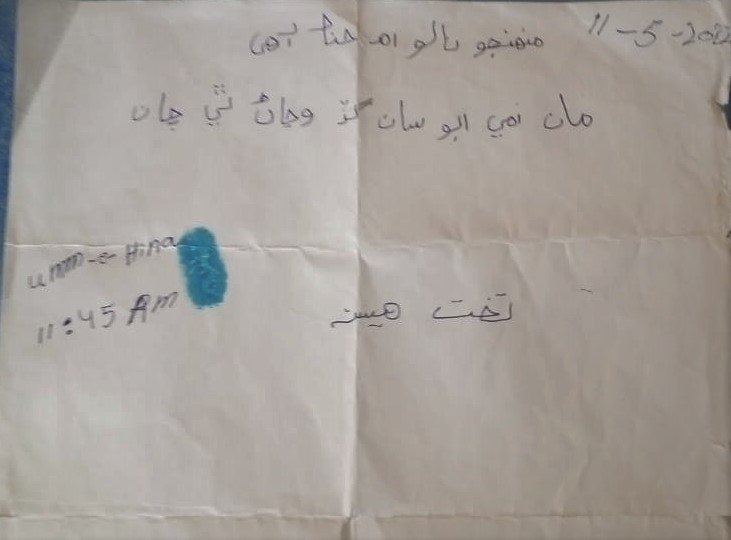 11-5-2022
منهنجو نالو ام حنا آهي
مان امي ابو سان گڏ وڃان ٿي چان
umm-e-Hina
11:45 AM
تخت هيٺ